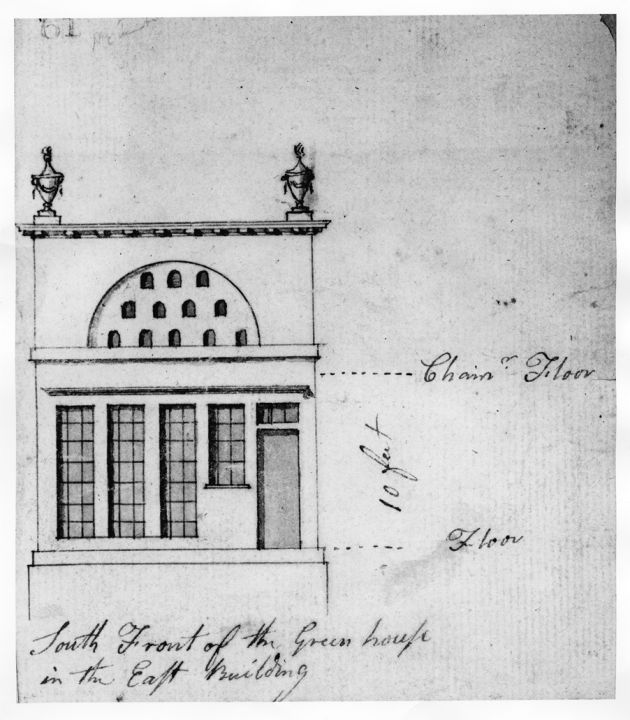 61
Cham.r Floor
10 feet
Floor
South Front of the Green houſe
in the Eaſt Building